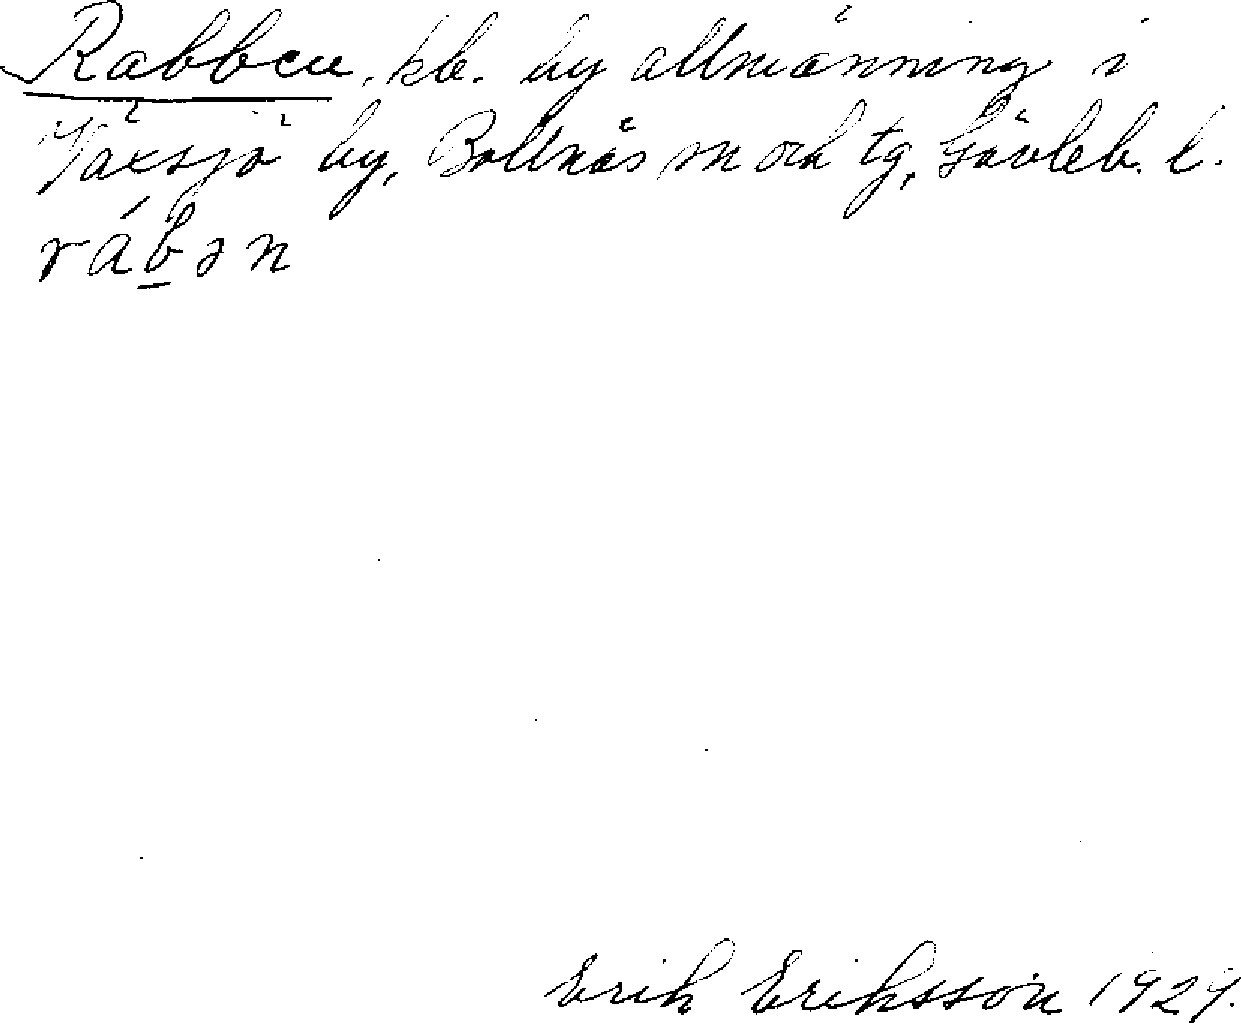 Rabben, kb. by allmänning i
Växsjö by, Bollnäs sn och tg, Gävleb. l.
rábən
Erik Eriksson 1929.